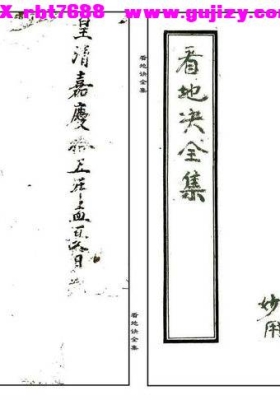 X.rbt7688 www.gujizy.com
看地决全集
妙用
看地诀全集
皇清嘉慶拾五年孟夏
看地诀全集